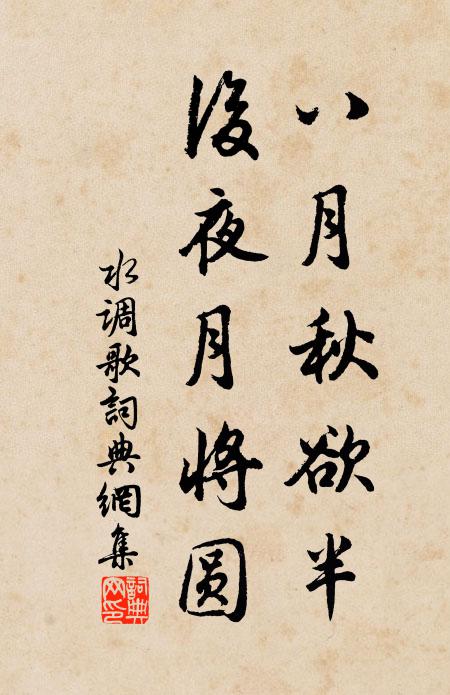 八月秋欲半
後夜月将圆
水调歌詞典網集
詞典
网印